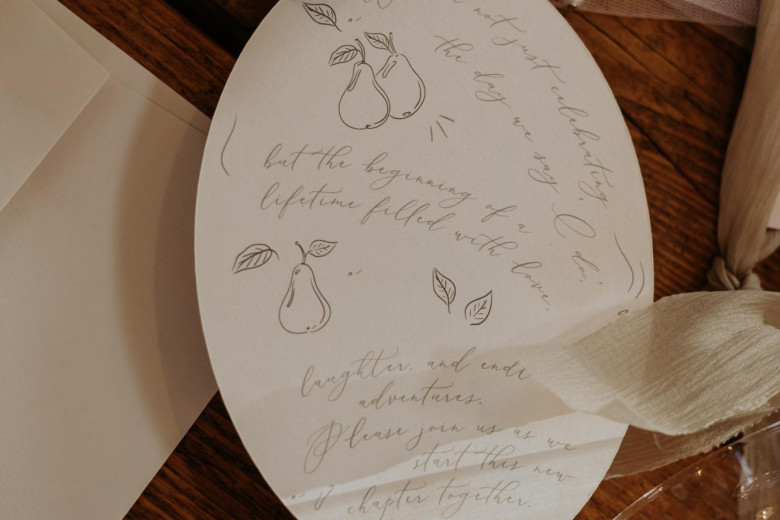 not just celebrating
the day we say 'I do,'
but the beginning of a
lifetime filled with love,
laughter, and endl
adventures.
Please join us as we
start this new
chapter together.